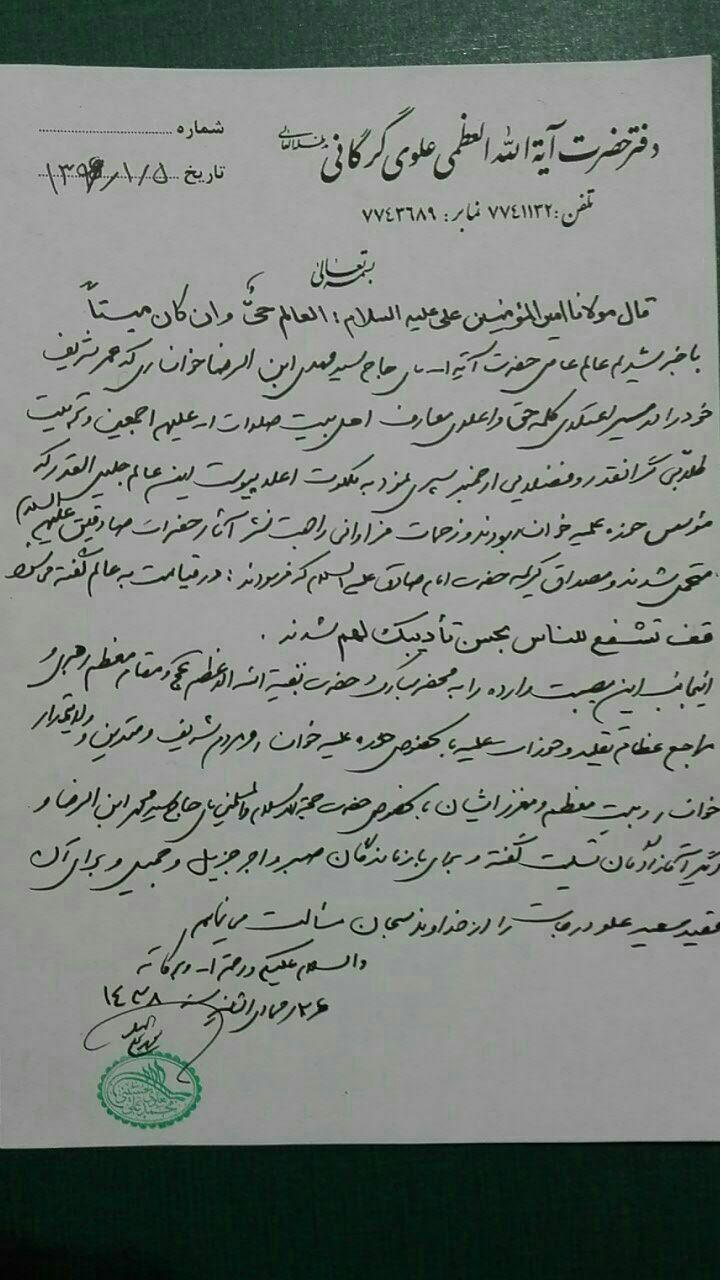 دفتر حضرت آیة الله العظمی علوی گرگانی مدظله العالی
شماره
تاریخ ۱۳۹۶/۱/۵
تلفن: ۷۷٤۱۱۳۲ نمابر: ۷۷٤۳٦۸۹
بسمه تعالی
قال مولانا امیرالمؤمنین علی علیه السلام: العالم حیٌّ و ان کان میتاً
با خبر شدیم عالم عامل حضرت آیة ا... حاج سید مهدی ابن الرضا خوانساری که عمر شریف
خود را در مسیر اعتلای کلمه حق و اعلای معارف اهل بیت صلوات ا... علیهم اجمعین و تربیت
طلابی گرانقدر و فضلایی ارجمند سپری نمود به ملکوت اعلا پیوست این عالم جلیل القدر که
مؤسس حوزه علمیه خوانسار بودند و زحمات فراوانی را جهت نشر آثار حضرات صادقین علیهم السلام
متحمل شدند و مصداق کریمه حضرت امام صادق علیه السلام که فرمودند: در قیامت به عالم گفته می‌شود
قف تشفع للناس بحسن تأدیبک لهم شدند.
اینجانب این مصیبت وارده را به محضر مبارک حضرت بقیة الله الاعظم عج و مقام معظم رهبری و
مراجع عظام تقلید و حوزات علمیه بالخصوص حوزه علمیه خوانسار و مردم شریف و متدین و ولایتمدار
خوانسار و بیت معظم و معزز ایشان بالخصوص حضرت حجة الاسلام والمسلمین حاج سید محمد ابن الرضا و
دیگر آقازادگان تسلیت گفته و برای بازماندگان صبر و اجر جزیل و جمیل و برای آن
فقید سعید علو درجات را از خداوند سبحان مسألت می‌نمایم
والسلام علیکم و رحمة ا... و برکاته
۲۶ جمادی الثانی ۱۴۳۸